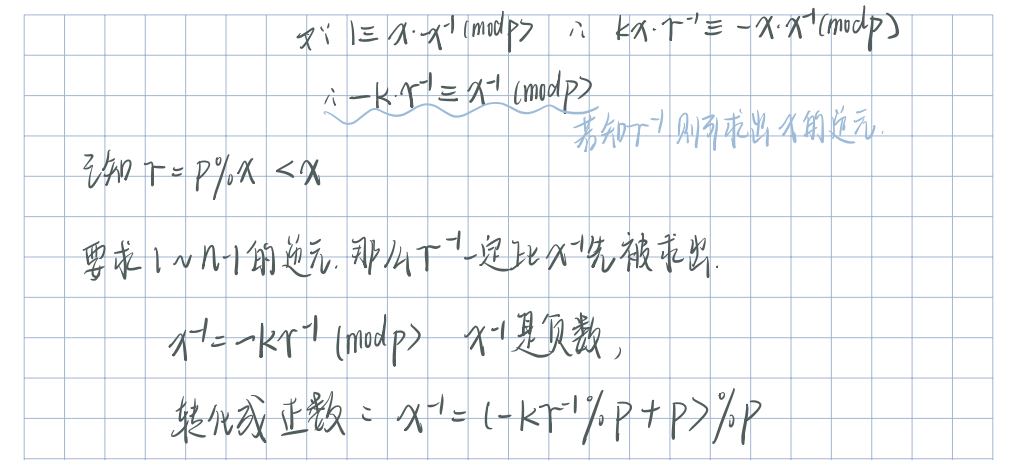 又∵ 1≡x·x⁻¹(mod p) ∴ kx·r⁻¹≡-x·x⁻¹(mod p)
∴ -k·r⁻¹≡x⁻¹(mod p)
若知r⁻¹则可求出x的逆元.
已知 r=p%x <x
要求1~n-1的逆元.那么r⁻¹一定比x⁻¹先被求出.
x⁻¹=-kr⁻¹(mod p) x⁻¹是负数,
转化成正数: x⁻¹=(-kr⁻¹%p+p)%p